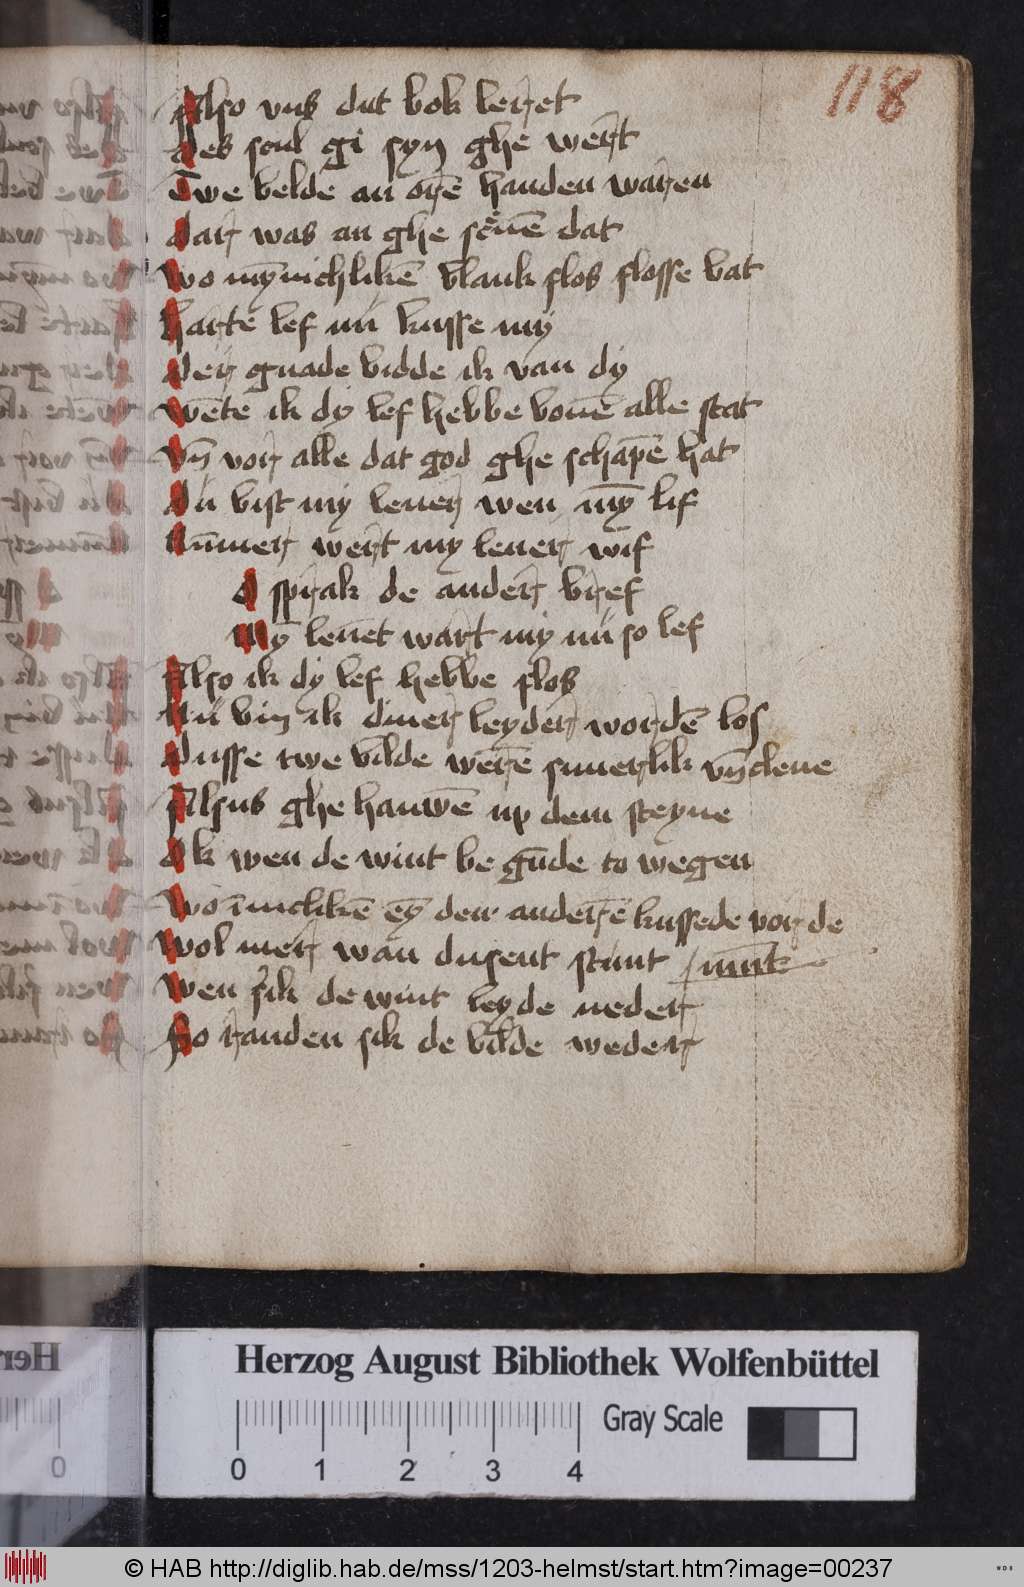 118
Also vns dut bok leret
Des scul gi syn ghe wert
Twe belde an orē handen waren
Dar was an ghe scͤuē dat
Wo mȳnichlikē blank flos flosse bat
Harte lef nu kusse my
Der gnade bidde ik van dy
Wēte ik dy lef hebbe bouē alle stat
Vn̄ vor alle dat god ghe schapē hat
Du bist my leuer wen mȳ lif
Nūmer wert my leuer wif
O sprak de ander bref
Mȳ leuēt wart my nu so lef
Also ik dy lef hebbe flos
Nu bin ik diner leyder wordē los
Dusse twe bilde werē suuerlik vn̄ clene
Alsus ghe hauwē up dem steyne
Ok wen de wint be gūde to wegen
Wo īnichlikē eȳ den anderē kussede vor de
Wol mer wan dusent stunt munt
Wen sik de wint leyde neder
So randen sik de bilde weder
Herzog August Bibliothek Wolfenbüttel
Gray Scale
0 1 2 3 4
© HAB http://diglib.hab.de/mss/1203-helmst/start.htm?image=00237